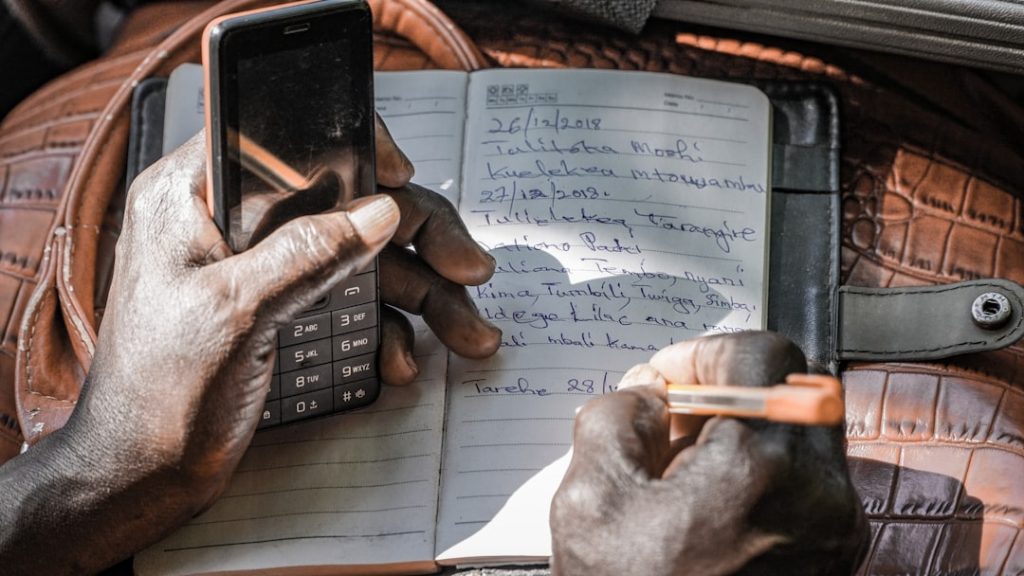 26/12/2018
Tulitoka Moshi
Kuelekea mtowyambu
27/12/2018.
Tulielekea Tarangire
Tembo, nyani
Kima, Tumbili, Twiga, Simba,
ndege Lilac ana
mbali kama
Tarehe 28/
2 ABC
3 DEF
5 JKL
6 MNO
8 TUV
9 WXYZ
0
#